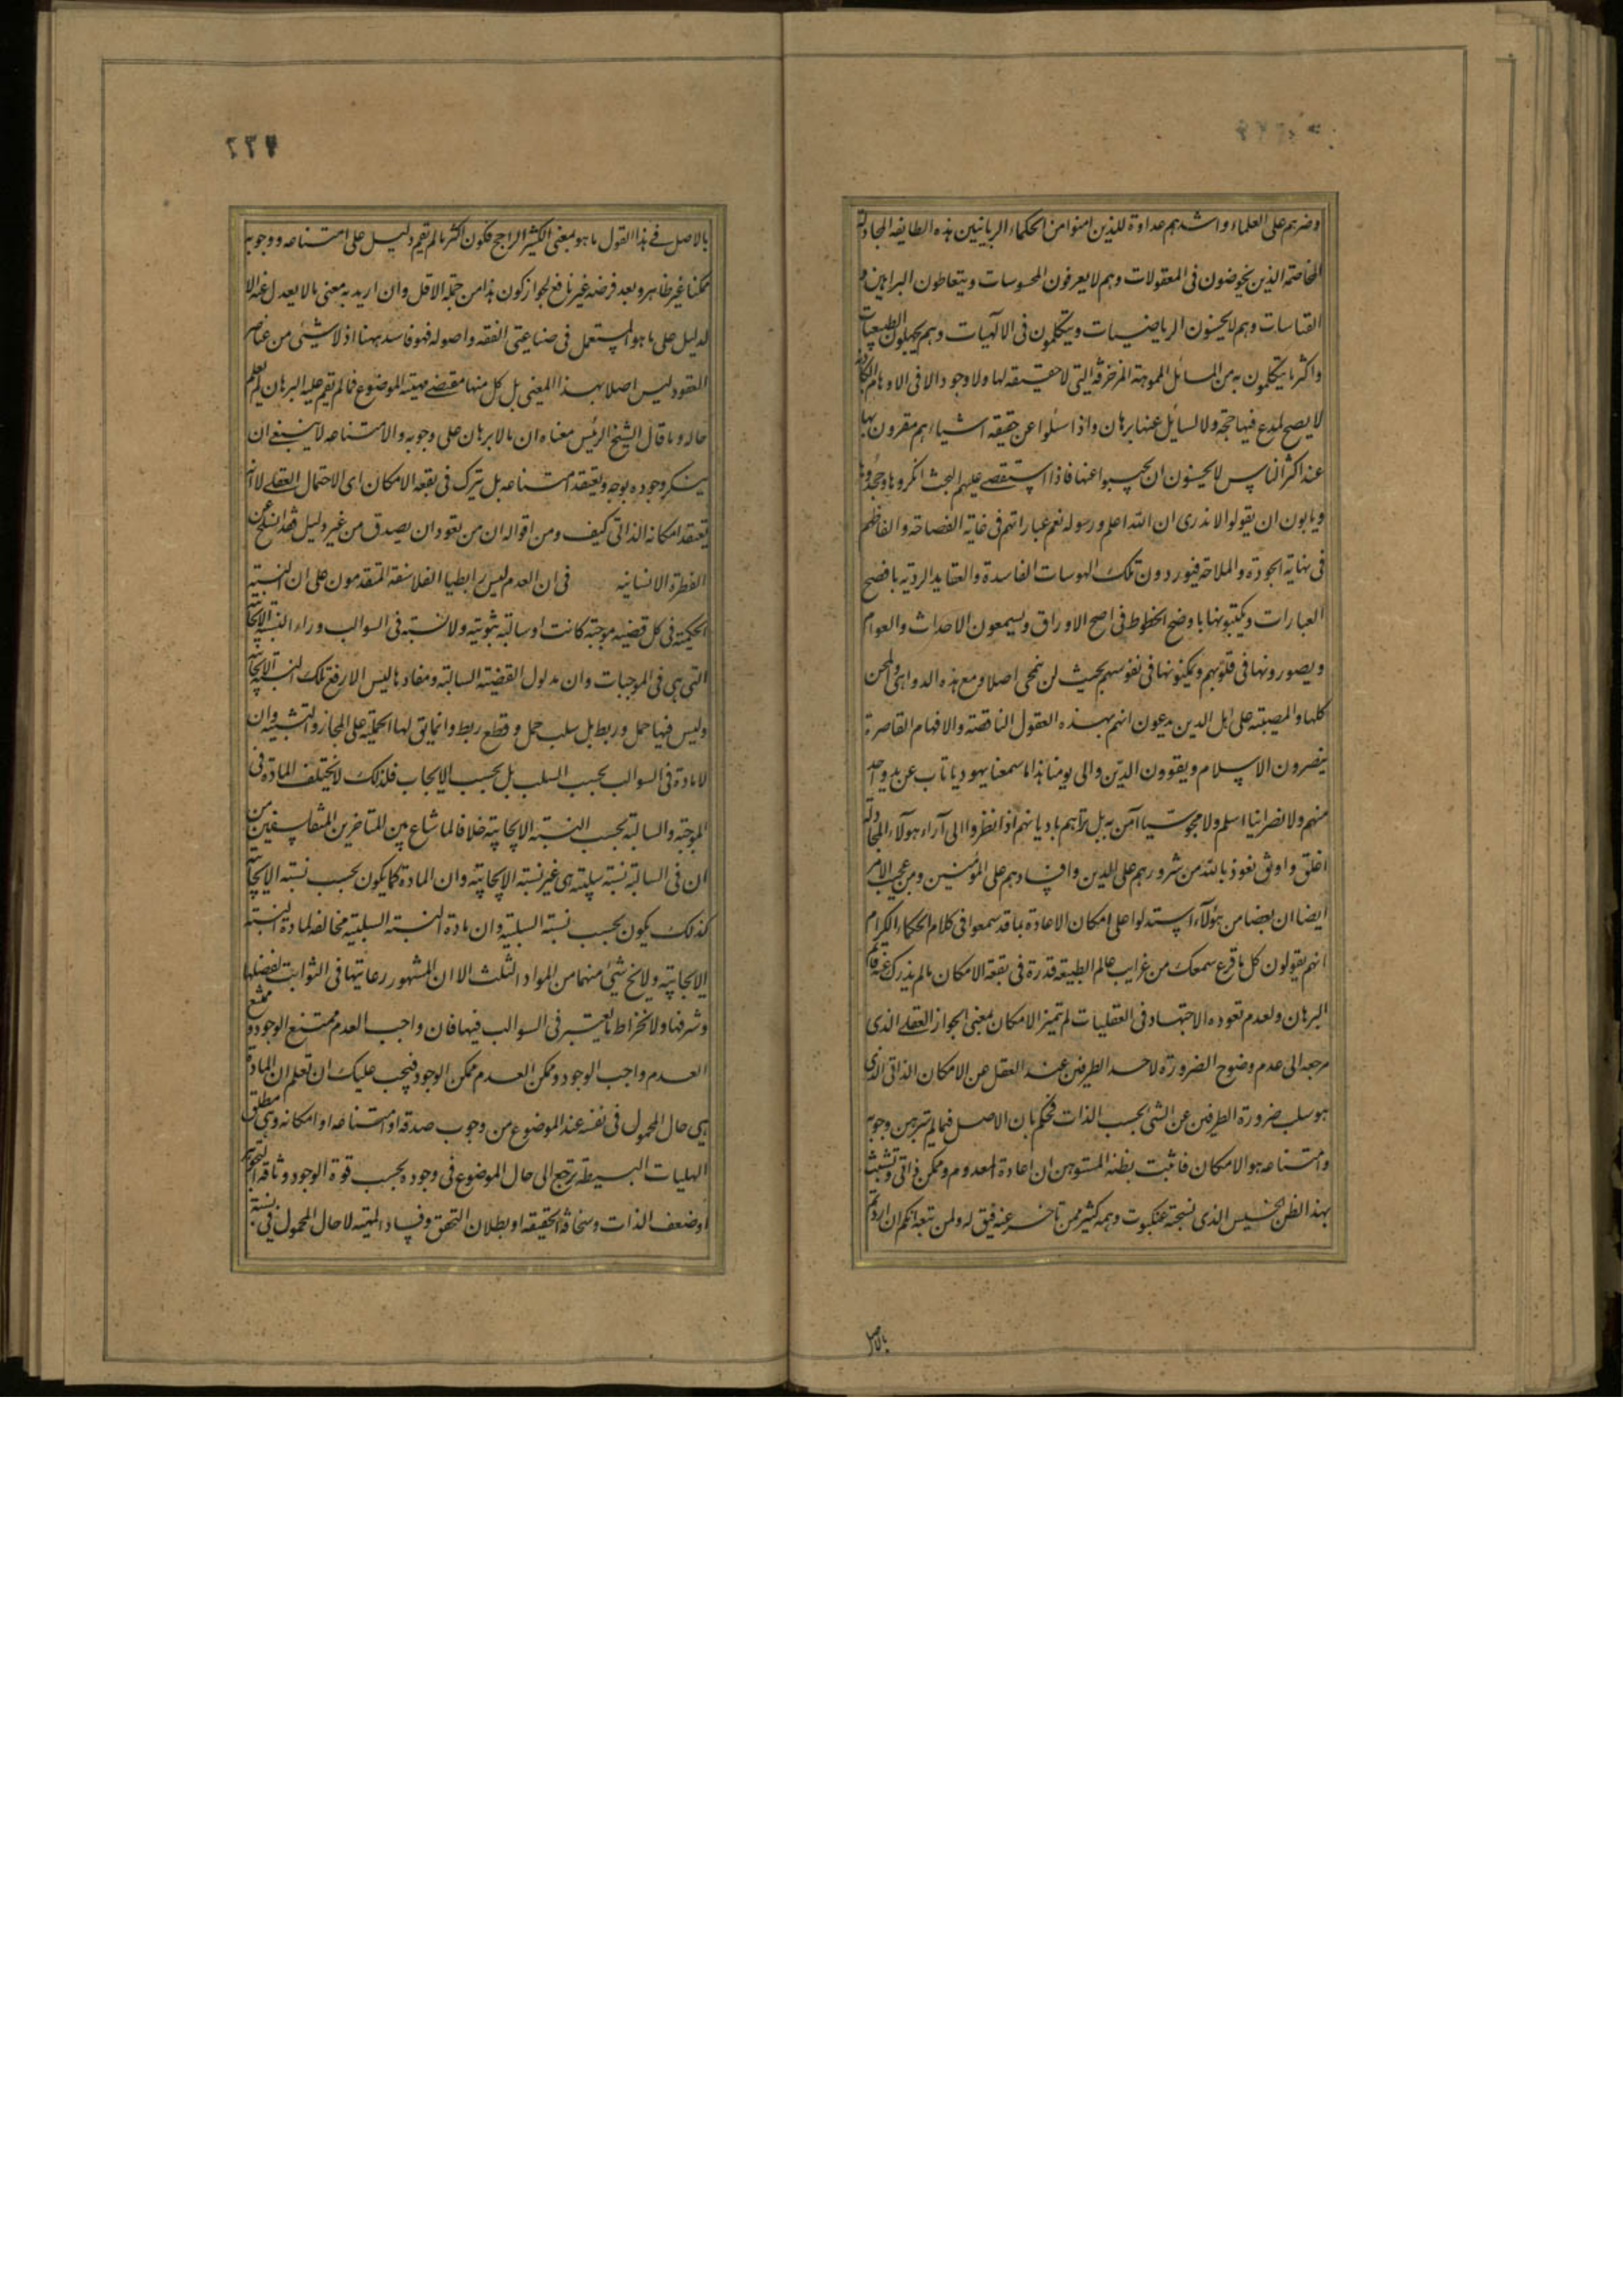 وضرهم على العلماء واشدهم عداوة للذين امنوا من الحكماء الربانيين هذه الطايفة المجادلة
المخاصمة الذين يخوضون فى المعقولات وهم لا يعرفون المحسوسات ويتعاطون البراهين و
القياسات وهم لا يحسنون الرياضيات ويتكلمون فى الالهيات وهم يجهلون الطبيعيات
واكثر ما يتكلمون به من المسائل المموهة المزخرفة التى لا حقيقة لها ولا وجود الا فى الاوهام الكاذبة
لا يصح لمدع فيها حجة ولا لسائل عنها برهان واذا سئلوا عن حقيقة اشياء هم مقرون بها
عند اكثر الناس لا يحسنون ان يجيبوا عنها فاذا استقصى عليهم البحث انكروها وجحدوها
ويابون ان يقولوا لا ندرى ان الله اعلم ورسوله نعم عباراتهم فى غاية الفصاحة والفاظهم
فى نهاية الجودة والملاحة فيوردون تلك الهوسات الفاسدة والعقايد الردية بافصح
العبارات ويكتبونها باوضح الخطوط فى اصح الاوراق ويسمعون الاحداث والعوام
ويصورونها فى قلوبهم ويمكنونها فى نفوسهم بحيث لن نمحى اصلا ومع هذه الدواهى والمحن
كلها والمصيبة على اهل الدين يدعون انهم بهذه العقول الناقصة والافهام القاصرة
ينصرون الاسلام ويقوون الدين والى يومنا هذا ما سمعنا يهوديا تاب عن يد واحد
منهم ولا نصرانيا اسلم ولا مجوسيا آمن به بل نراهم بادیانهم اذا نظروا الى آراء هولاء المجادلة
اغلق واوثق نعوذ بالله من شرورهم على الدين وافسادهم على المؤمنين ومن عجيب الامر
ايضا ان بعضا من هؤلاء استدلوا على امكان الاعادة بما قد سمعوا فى كلام الحكماء الكرام
انهم يقولون كل ما قرع سمعك من غرايب عالم الطبيعة قدرة فى بقعة الامكان ما لم يذرك عنه قائم
البرهان ولعدم تعوده الاجتهاد فى العقليات لم تميز الامكان بمعنى الجواز العقلى الذى
مرجعه الى عدم وضوح الضرورة لاحد الطرفين عند العقل عن الامكان الذاتى الذى
هو سلب ضرورة الطرفين عن الشئ بحسب الذات فحكم بان الاصل فيما لم يتبرهن وجوبه
وامتناعه هو الامكان فاثبت بظنه المستوهن ان اعادة المعدوم ممكن ذاتى وتشبث
بهذا الظن الخسيس الذى نسجته عنكبوت وهمه كثير ممن تاخر عنه فيق له ولمن تبعه انكم ان اردتم
بالاصل
٢٣٧
بالاصل فى هذا القول ما هو بمعنى الكثير الراجح فكون اكثر ما لم يقم دليل على امتناعه ووجوبه
ممكنا غير ظاهر وبعد فرضه غير نافع لجواز كون هذا من جملة الاقل وان اريد به معنى ما لا يعدل عنه الا
لدليل على ما هو المستعمل فى صناعتى الفقه واصوله فهو فاسد ههنا اذ لا شيئ من عناصر
العقود ليس اصلا بهذا المعنى بل كل منها مقتضى مهية الموضوع فما لم تقم عليه البرهان لم يعلم
حاله وما قال الشيخ الرئيس معناه ان ما لا برهان على وجوبه والامتناعه لا ينبغى ان
ينكر وجوده بوجه ويعتقد امتناعه بل يترك فى بقعة الامكان اى الاحتمال العقلى لا انه
يعتقد امكانه الذاتى كيف ومن اقواله ان من تعود ان يصدق من غير دليل فقد انسلخ عن
الفطرة الانسانيه فى ان العدم ليس رابطيا الفلاسفة المتقدمون على ان النسبة
الحكمية فى كل قضية موجبة كانت او سالبة ثبوتية ولا نسبة فى السوالب وراء النسبة الايجابية
التى هى فى الموجبات وان مدلول القضية السالبة ومفادها ليس الا رفع تلك النسبة الايجابية
وليس فيها حمل وربط بل سلب حمل وقطع ربط وانما يق لها الحملية على المجاز والتشبيه وان
لا مادة فى السوالب بحسب السلب بل بحسب الايجاب فلذلك لا يختلف المادة فى
الموجبة والسالبة بحسب النسبة الايجابية خلافا لما شاع بين المتاخرين المتفلسفين من
ان فى السالبة نسبة سلبية هى غير نسبة الايجابية وان المادة كما يكون بحسب نسبة الايجابية
كذلك يكون بحسب نسبة السلبية وان مادة النسبة السلبية مخالفة لمادة النسبة
الايجابية ولا يخ شيئ منهما من المواد الثلث الا ان المشهور رعايتها فى الثوابت لفضلها
وشرفها ولانخراط ما يعتبر فى السوالب فيها فان واجب العدم ممتنع الوجود وممتنع
العدم واجب الوجود وممكن العدم ممكن الوجود فيجب عليك ان تعلم ان المادة
هى حال المحمول فى نفسه عند الموضوع من وجوب صدقه او امتناعه او امكانه وهى مطلق
الهليات البسيطة ترجع الى حال الموضوع فى وجوده بحسب قوة الوجود وثاقة التجوهر
او ضعف الذات وسخافة الحقيقة او بطلان التحقق وفساد المهية لا حال المحمول فى نسبته